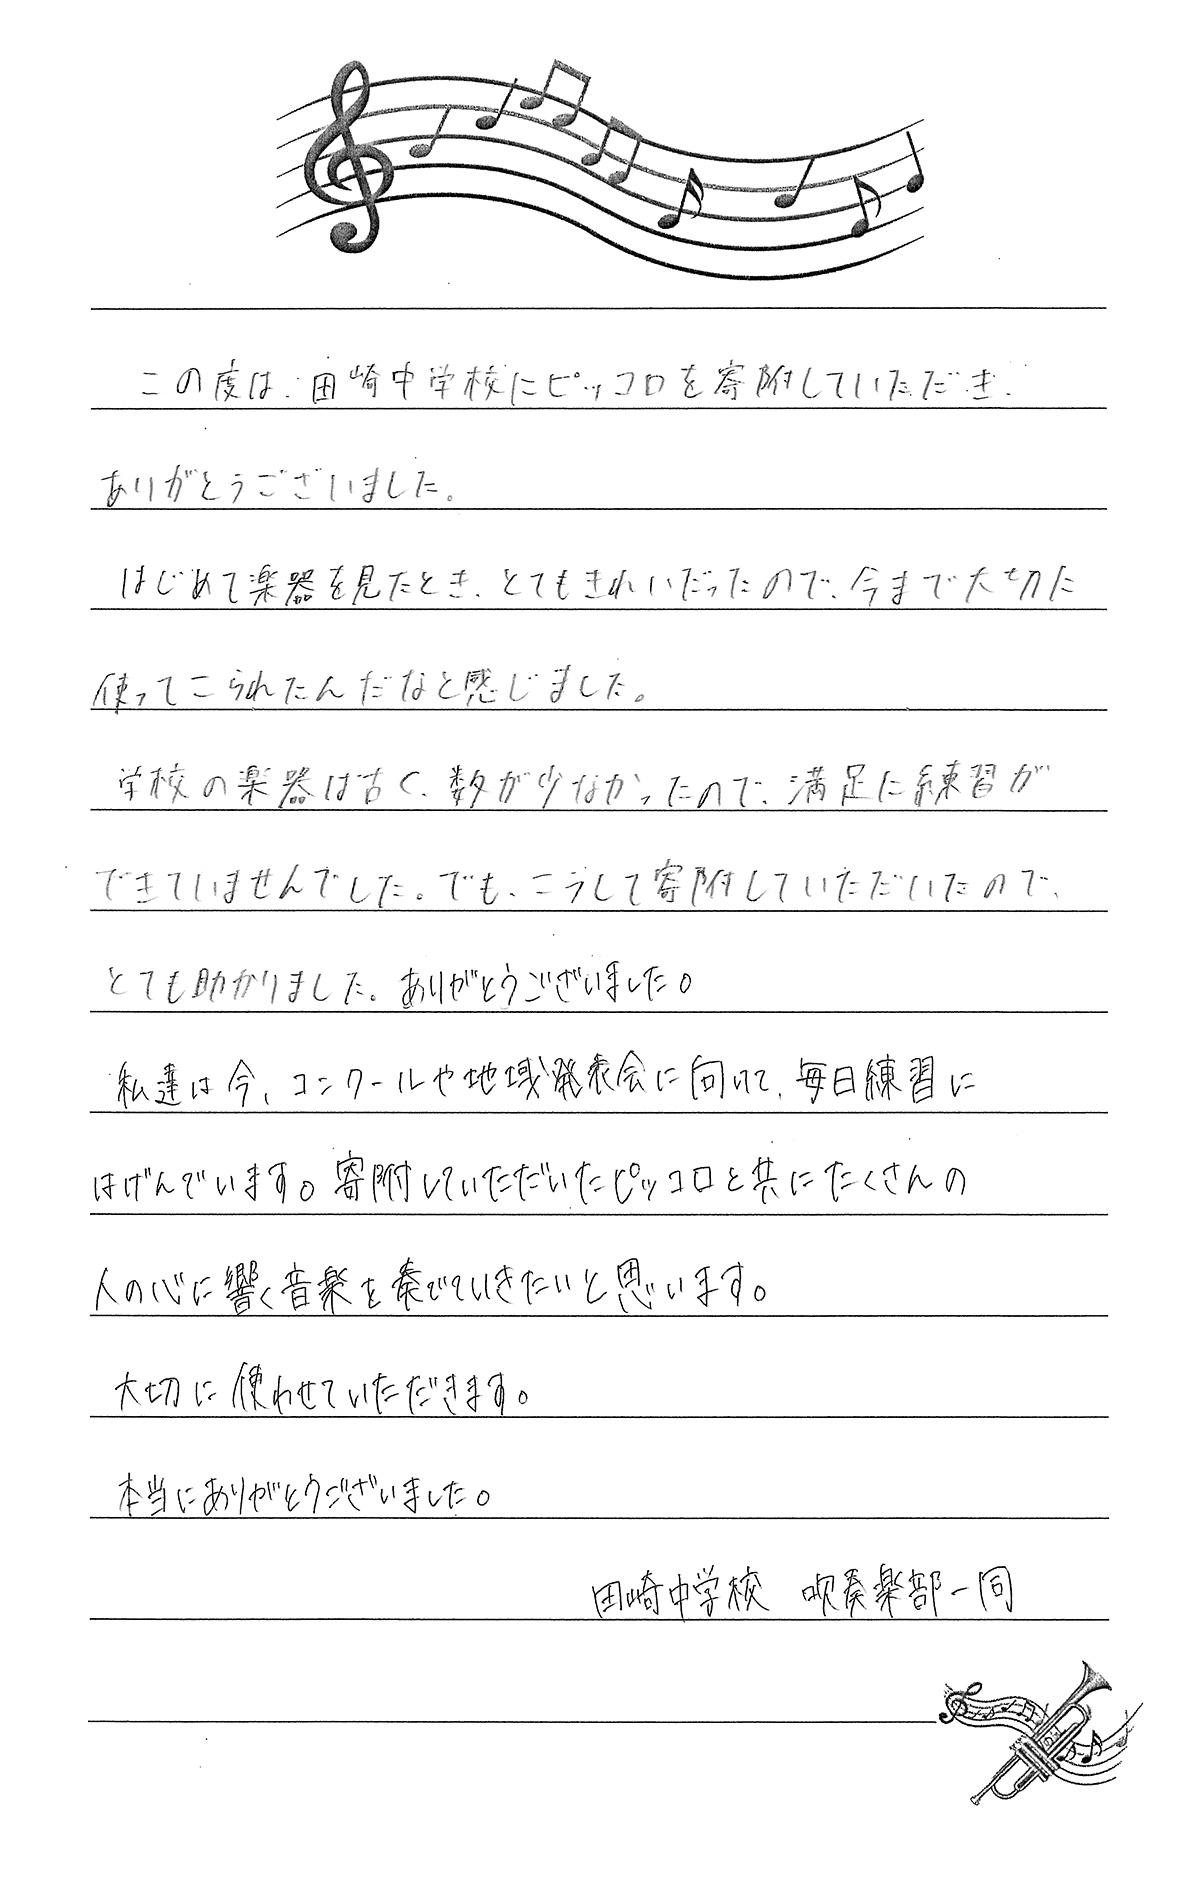 この度は、田崎中学校にピッコロを寄附していただき、
ありがとうございました。
はじめて楽器を見たとき、とてもきれいだったので、今まで大切に
使ってこられたんだなと感じました。
学校の楽器は古く、数が少なかったので、満足に練習が
できていませんでした。でも、こうして寄附していただいたので、
とても助かりました。ありがとうございました。
私達は今、コンクールや地域発表会に向けて、毎日練習に
はげんでいます。寄附していただいたピッコロと共にたくさんの
人の心に響く音楽を奏でていきたいと思います。
大切に使わせていただきます。
本当にありがとうございました。
田崎中学校 吹奏楽部一同